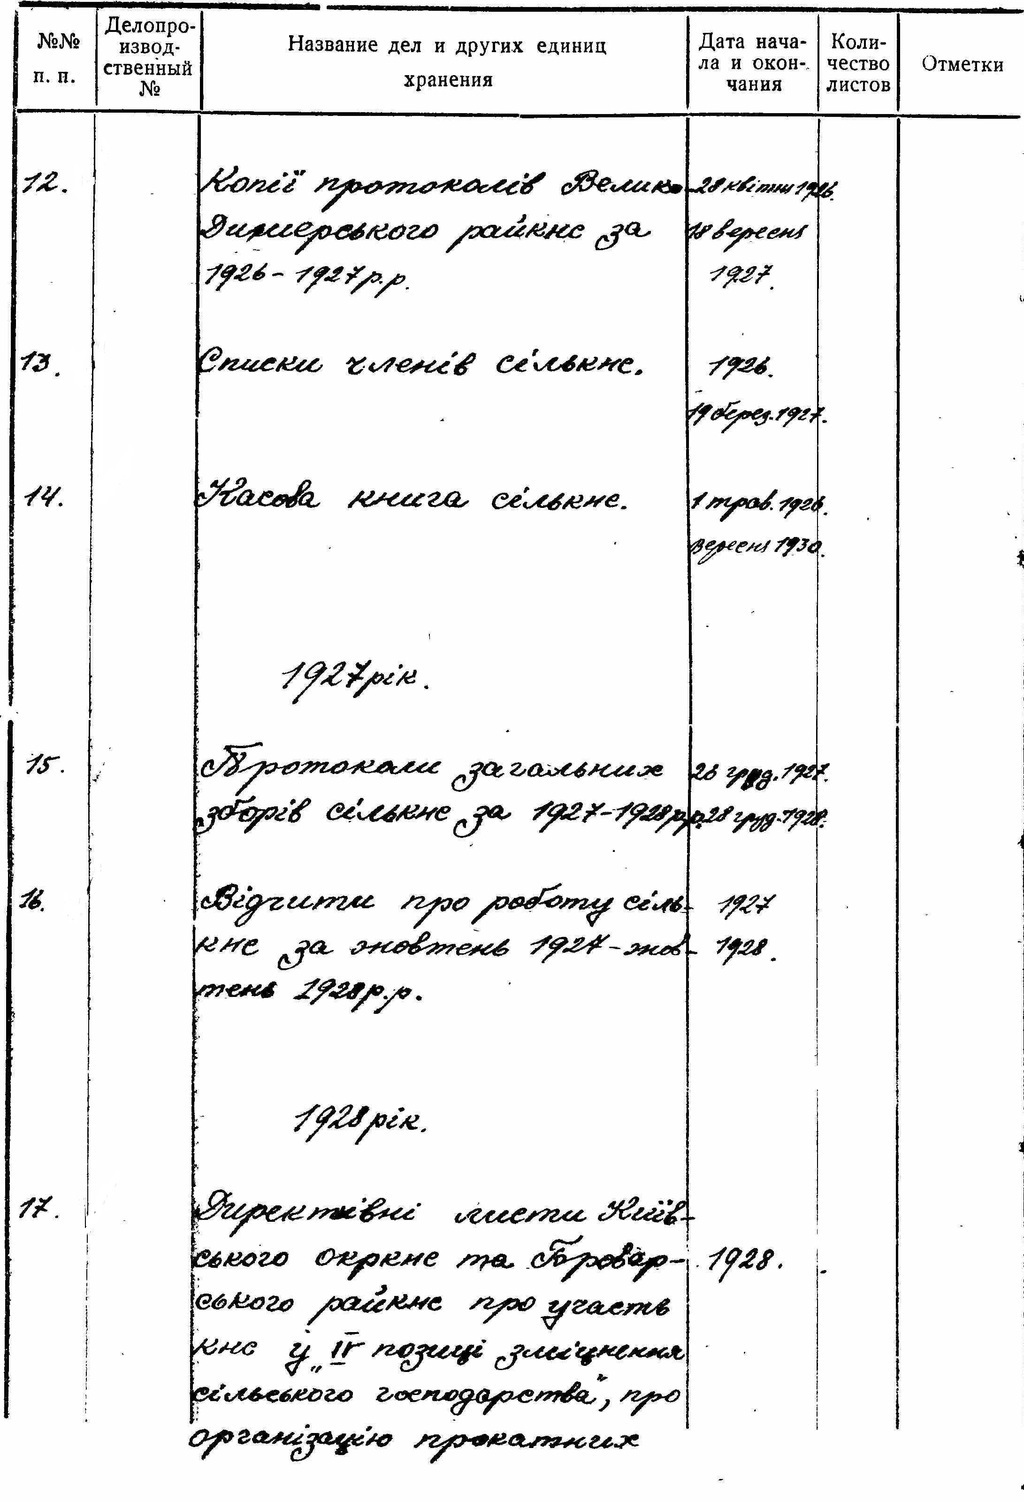 №№ п. п.
Делопро-изводственный №
Название дел и других единиц хранения
Дата начала и окончания
Количество листов
Отметки
12. Копії протоколів Велико- 28 квітня 1926.
Димерського райкнс за 18 вересня
1926-1927 р.р. 1927.
13. Списки членів сількнс. 1926.
19 берез. 1927.
14. Касова книга сількнс. 1 трав. 1926.
вересня 1930.
1927 рік.
15. Протоколи загальних 26 груд. 1927.
зборів сількнс за 1927-1928 р.р. 28 груд. 1928.
16. Відчити про роботу сіль- 1927
кнс за жовтень 1927 - жов- 1928.
тень 1928 р.р.
1928 рік.
17. Директивні листи Київ-
ського окркнс та Бровар- 1928.
ського райкнс про участь
кнс у „IV позиці зміцнення
сільського господарства", про
організацію прокатних